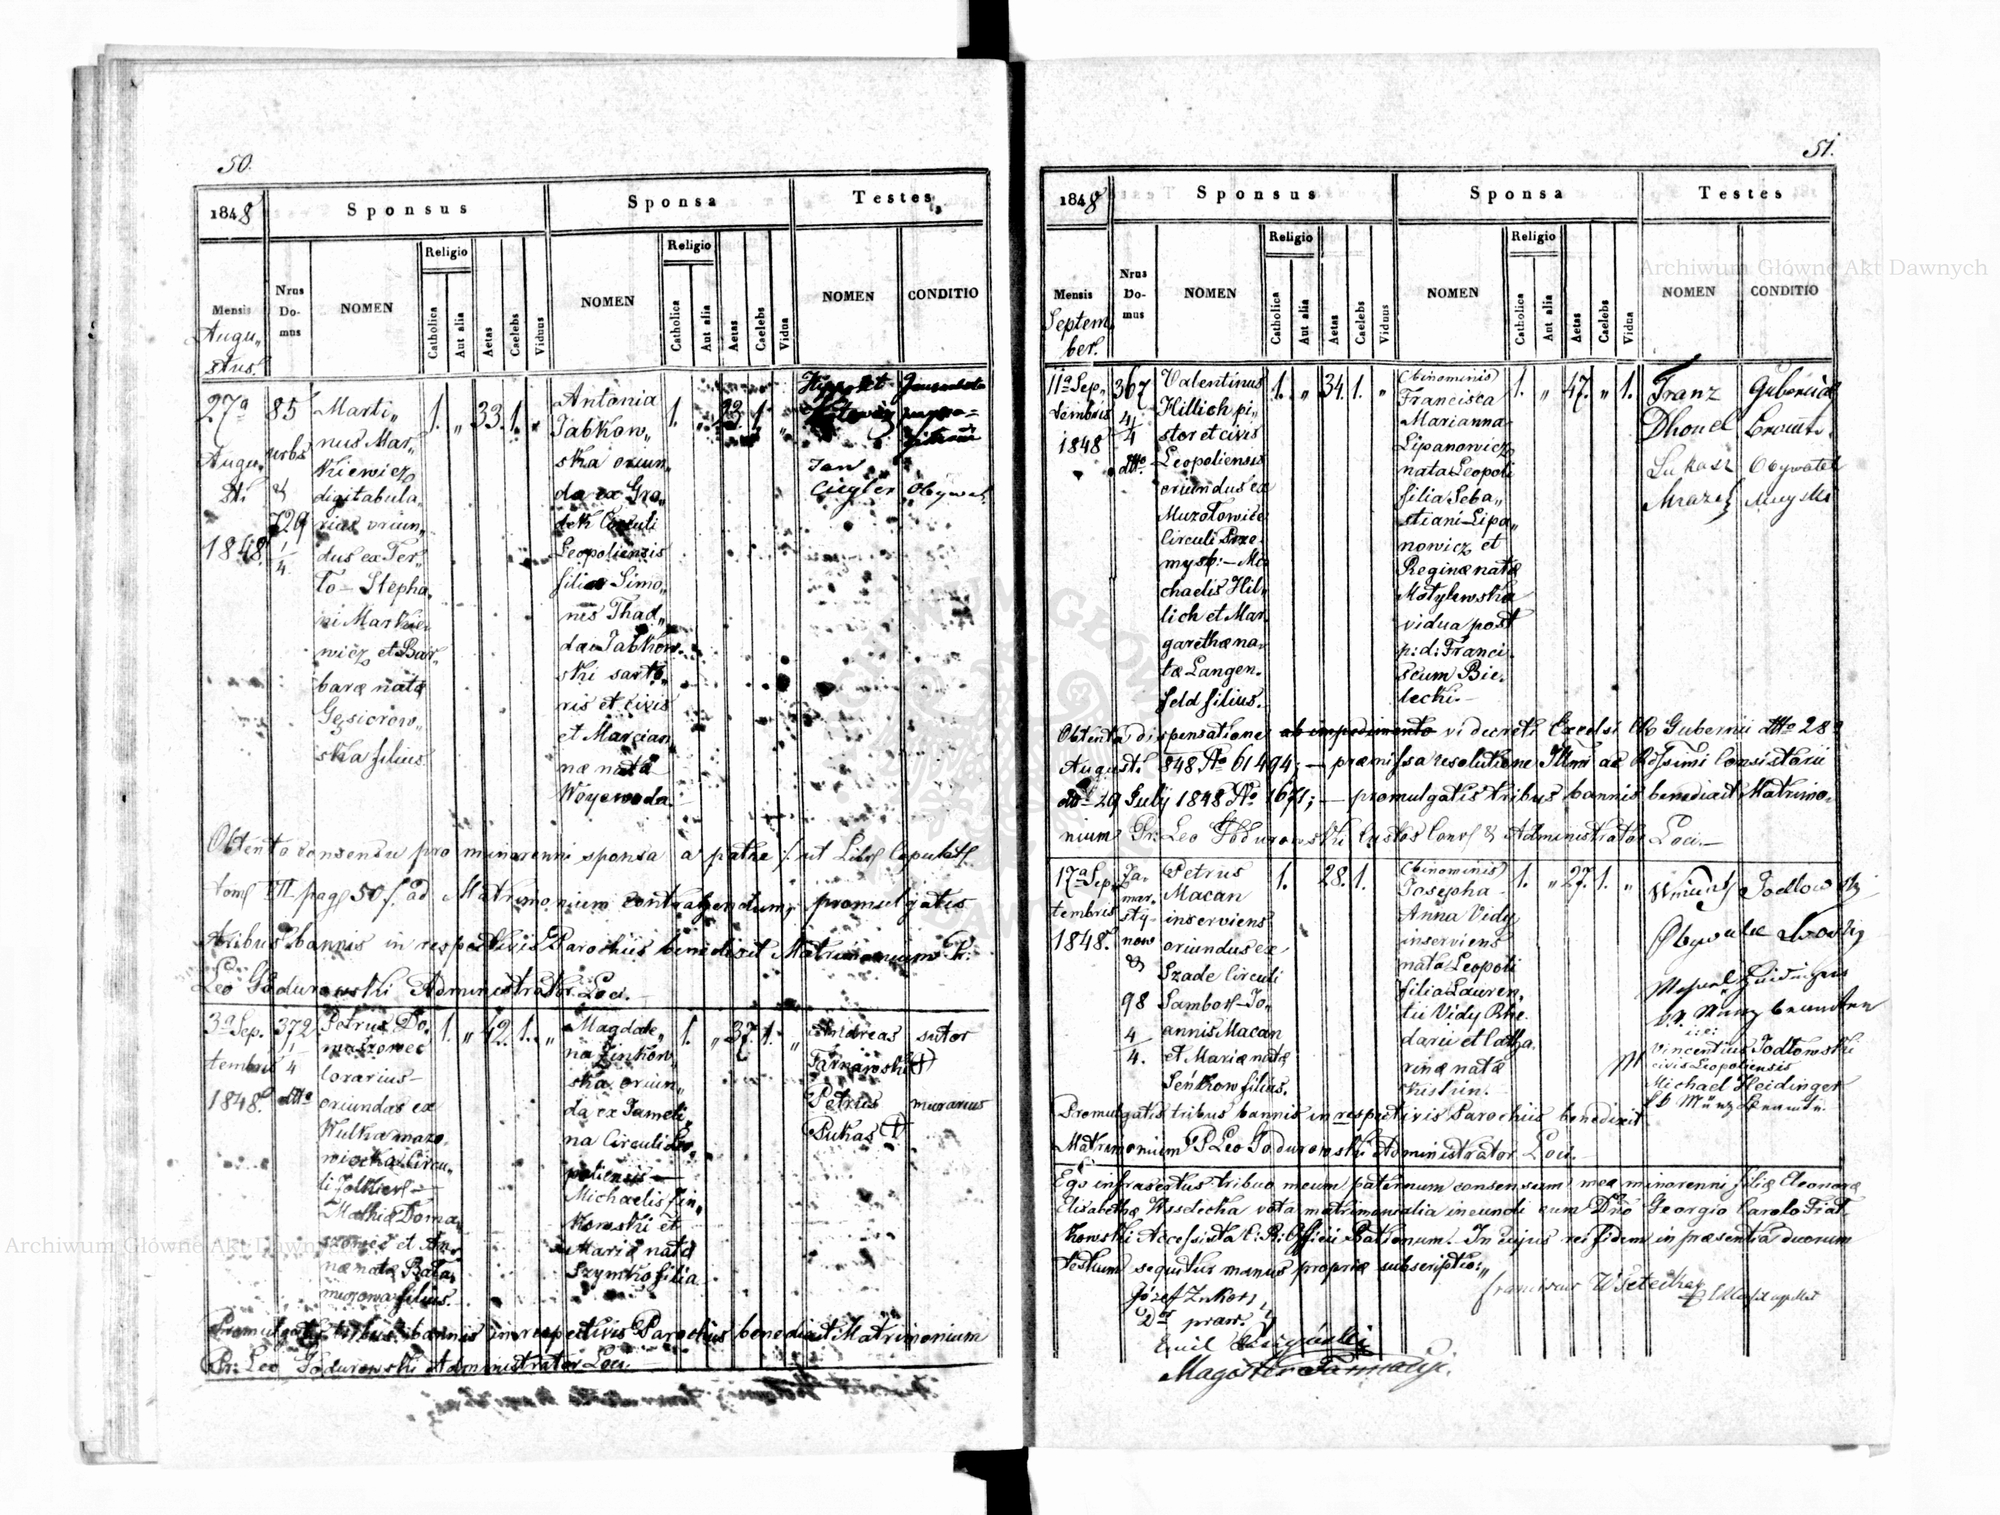 50.
1848
Sponsus
Sponsa
Testes
Mensis
Augu„
stus.
Nrus
Do-
mus
NOMEN
Religio
Catholica
Aut alia
Aetas
Caelebs
Viduus
NOMEN
Religio
Catholica
Aut alia
Aetas
Caelebs
Vidua
NOMEN
CONDITIO
27a
Augu„
sti
1848.
85
urbs
&
729
1/4
Marti„
nus Mar„
kiewicz
digitabula„
rius oriun„
dus ex Fer„
to – Stepha„
ni Markie„
wicz et Bar„
barae natae
Gęsiorow„
ska filius.
1. „ 33. 1. „
Antonia
Jabkow„
ska oriun„
da ex Gro„
dek Circuli
Leopoliensis
filia Simo„
nis Thad„
daei Jabkow„
ski sarto„
ris et civis
et Marcian„
nae natae
Woyewoda.
1. 23. 1. „
Hippolit
Jan
Ciegler Obywat.
Obtento consensu pro minorenni sponsa a patre /: ut Libr Copulatt
tom VII pag 50 f. ad Matrimonium contrahendum, promulgatis
tribus bannis in respectivis Parochiis benedixit Matrimonium Pr.
Leo Godurowski Administrator Loci.
3a Sep„
tembris
1848.
372
1/4
dtto
Petrus Do„
maszowec
lorarius –
oriundus ex
Wulka mazo„
wiecka Circu„
li Zolkiew –
Mathiae Doma„
szowec et An„
nae natae Bata„
mirowa filius.
1. „ 42. 1. „
Magdale„
na Zinkow„
ska oriun„
da ex Jameł„
na Circuli Leo„
poliensis –
Michaelis Zin„
kowski et
Mariae natae
Szymko filia
1. „ 37. 1. „
Andreas sutor
Tarnawski (+)
Petrus murarius
Pukas (+)
Promulgatis tribus bannis in respectivis Parochiis benedixit Matrimonium
Pr: Leo Godurowski Administrator Loci.
51.
1848
Sponsus
Sponsa
Testes
Mensis
Septem„
ber.
Nrus
Do-
mus
NOMEN
Religio
Catholica
Aut alia
Aetas
Caelebs
Viduus
NOMEN
Religio
Catholica
Aut alia
Aetas
Caelebs
Vidua
NOMEN
CONDITIO
11a Sep„
tembris
1848
367
4/4
dtto.
Valentinus
Hillich pi„
stor et civis
Leopoliensis
oriundus ex
Muzołowice
Circuli Prze„
mysl: – Mi„
chaelis Hil„
lich et Mar„
garethae na„
tae Langen„
feld filius.
1. „ 34. 1. „
(binominis)
Francisca
Marianna
Lipanowicz
nata Leopoli
filia Seba„
stiani Lipa„
nowicz et
Reginae natae
Motylewska
vidua post
p: d: Franci„
scum Bie„
lecki. –
1. „ 47. „ 1.
Franz Gubernial
Lukasz Obywatel
Mrazek Muzyka
Obtenta dispensatione ab impedimento vi decreti Excelsi CR Gubernii dtto 28a
Augusti 848 No 61494; – praemissa resolutione Illmi ac Rssimi Consistorii
dto 29 July 1848 No 1671; – promulgatis tribus bannis benedixit Matrimo„
nium Pr: Leo Godurowski Custos Cons & Administrator Loci. –
17a Sep„
tembris
1848.
Ja„
mar„
sty„
now
&
98
4/4.
Petrus
Macan
inserviens
oriundus ex
Szade Circuli
Sambor – Jo„
annis Macan
et Mariae natae
Seńkow filius.
1. 28. 1.
(binominis)
Josepha
Anna Vidy
inserviens
nata Leopoli
filia Lauren„
tii Vidy Rhe„
darii et Catha„
rinae natae
1. „ 27. 1. „
Vincenty Jodłowski
Obywatel Lwowski
i: e:
Vincentius Jodłowski
civis Leopoliensis
Michael Heidinger
kk Münz Beamte.
Promulgatis tribus bannis in respectivis Parochiis benedixit
Matrimonium P Leo Godurowski Administrator Loci. –
Ego infrascriptus tribuo meum paternum consensum meae minorenni filiae Eleonorae
Elisabethae Wsetecka vota matrimonialia ineundi cum Dno Georgio Carolo Fiał„
kowski Accessista C: R: Officii Rationum. In cujus rei fidem in praesentia duorum
testium sequitur manus propriae subscriptio:„
Franciscus Wsetecka
Dr praw.
Emil
Magister Farmacyi.
Archiwum Główne Akt Dawnych
Archiwum Główne Akt Dawnych